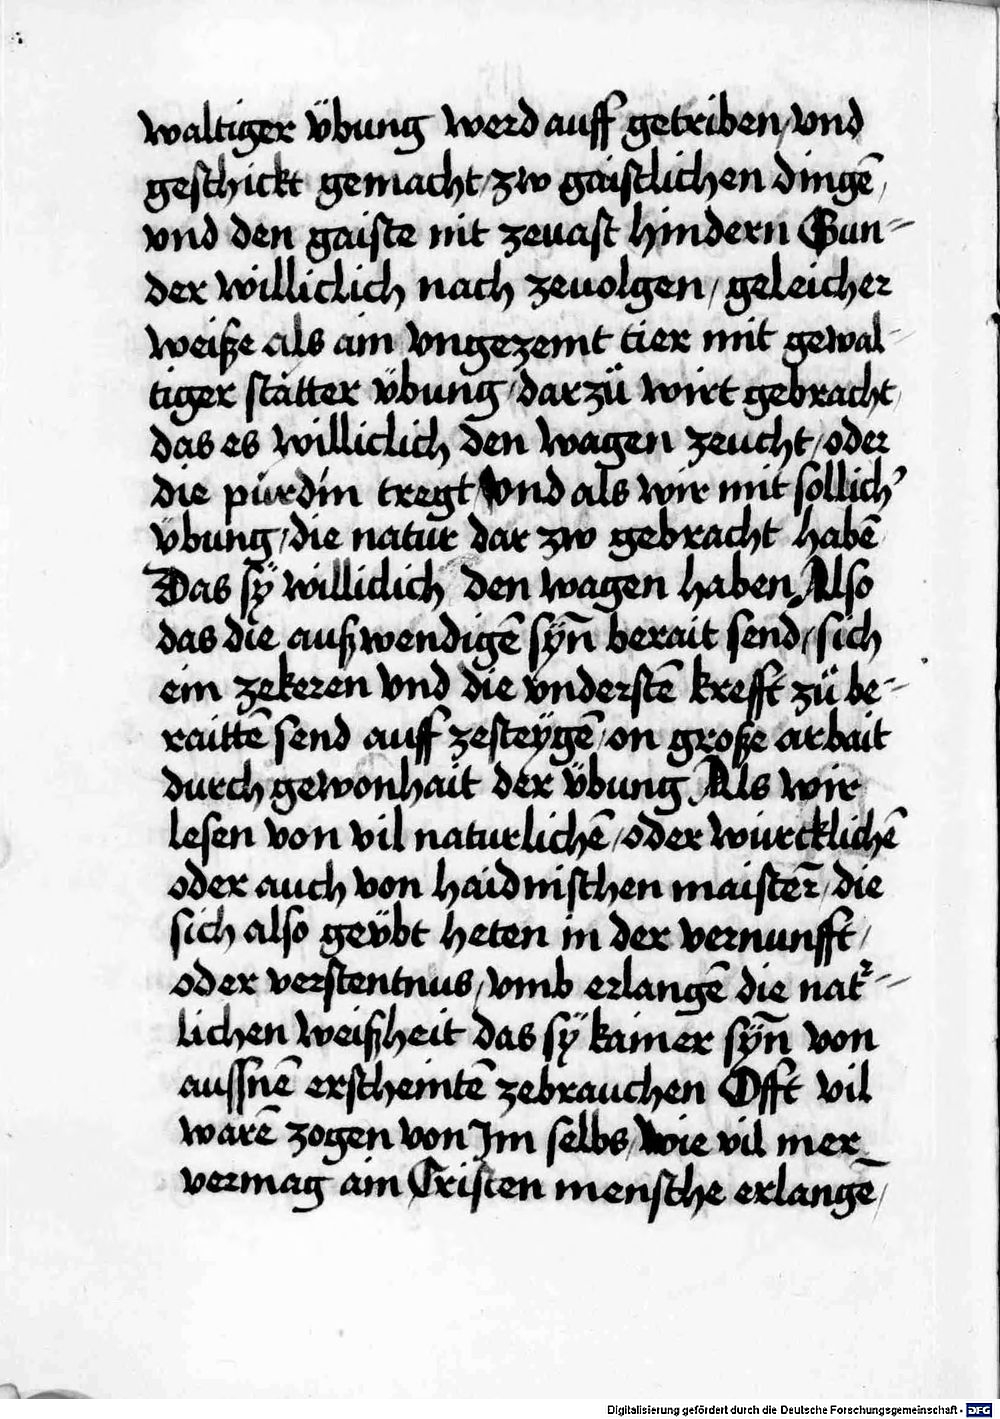 waltiger übung werd auff getriben / vnd
geschickt gemacht / zw gaistlichen dingē /
vnd den gaiste nit zeuast hindern Sun-
der williclich nach zeuolgen / geleicher
weiße als ain vngezemt tier mit gewal-
tiger stätter übung / darzü wirt gebracht /
das es williclich den wagen zeucht / oder
die pürdin tregt / Vnd als wir mit sollich'
übung / die natur dar zw gebracht habē
Das sÿ williclich den wagen haben Also
das die außwendigē sÿn̄ berait send / sich
ein zekeren vnd die vnderstē krefft zü be-
raittē send auff zesteÿgē / on große arbait
durch gewonhait der übung Als wir
lesen von vil naturlichē / oder würcklichē
oder auch von haidnischen maister̄ / die
sich also geübt heten in der vernunfft /
oder verstentnus / vmb erlangē die nat᷑-
lichen weißheit das sÿ kainer sÿn̄ von
aussnē erscheintē zebrauchen Offt vil
warē zogen von Jm selbs / wie vil mer
vermag ain Cristen mensche erlangē /
Digitalisierung gefördert durch die Deutsche Forschungsgemeinschaft - DFG